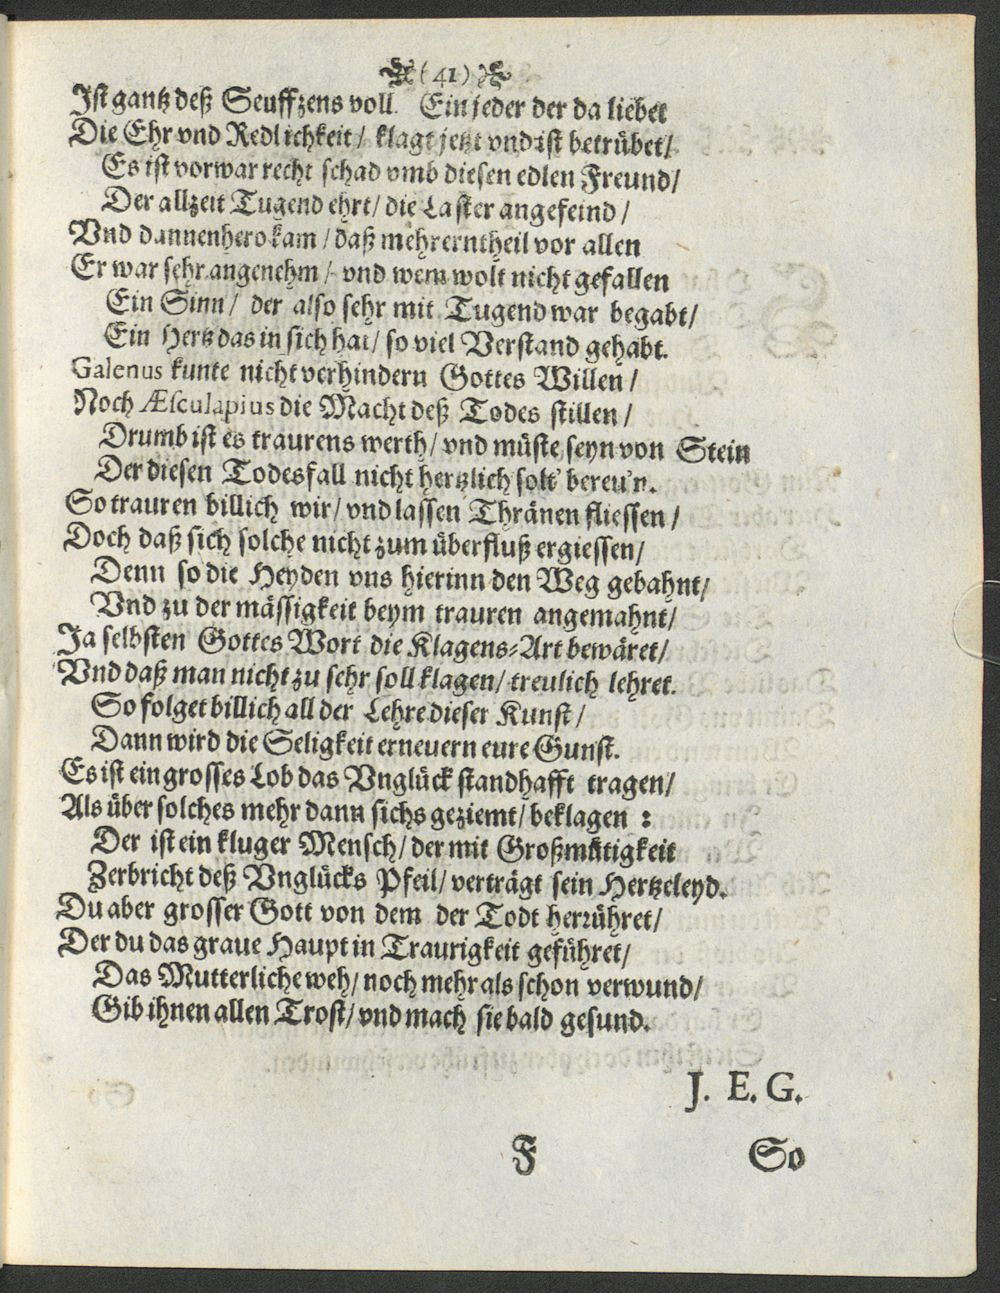 (41)
Ist gantz deß Seuffzens voll. Ein jeder der da liebet
Die Ehr vnd Redlichkeit / klagt jetzt vnd ist betrübet /
Es ist vorwar recht schad vmb diesen edlen Freund /
Der allzeit Tugend ehrt / die Laster angefeind /
Vnd dannenhero kam / daß mehrerntheil vor allen
Er war sehr angenehm / vnd wem wolt nicht gefallen
Ein Sinn / der also sehr mit Tugend war begabt /
Ein Hertz das in sich hat / so viel Verstand gehabt.
Galenus kunte nicht verhindern Gottes Willen /
Noch Æsculapius die Macht deß Todes stillen /
Drumb ist es traurens werth / vnd müste seyn von Stein
Der diesen Todesfall nicht hertzlich solt' bereu'n.
So trauren billich wir / vnd lassen Thränen fliessen /
Doch daß sich solche nicht zum überfluß ergiessen /
Denn so die Heyden vns hierinn den Weg gebahnt /
Vnd zu der mässigkeit beym trauren angemahnt /
Ja selbsten Gottes Wort die Klagens-Art bewäret /
Vnd daß man nicht zu sehr soll klagen / treulich lehret.
So folget billich all der Lehre dieser Kunst /
Dann wird die Seligkeit erneuern eure Gunst.
Es ist ein grosses Lob das Vnglück standhafft tragen /
Als über solches mehr dann sichs geziemt / beklagen :
Der ist ein kluger Mensch / der mit Großmütigkeit
Zerbricht deß Vnglücks Pfeil / verträgt sein Hertzeleyd.
Du aber grosser Gott von dem der Todt herrühret /
Der du das graue Haupt in Traurigkeit geführet /
Das Mutterliche weh / noch mehr als schon verwund /
Gib ihnen allen Trost / vnd mach sie bald gesund.
J. E. G.
F So